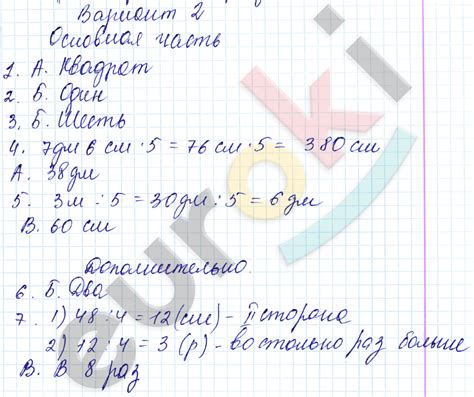 Вариант 2
Основная часть
1. А. Квадрат
2. Б. Один
3. Б. Шесть
4. 7дм 6 см · 5 = 76 см · 5 = 380 см
А. 38дм
5. 3м : 5 = 30дм : 5 = 6 дм
В. 60 см
Дополнительно
6. Б. Два
7. 1) 48 : 4 = 12 (см) - II сторона
2) 12 : 4 = 3 (р) - во столько раз больше
В. В 8 раз
euroki